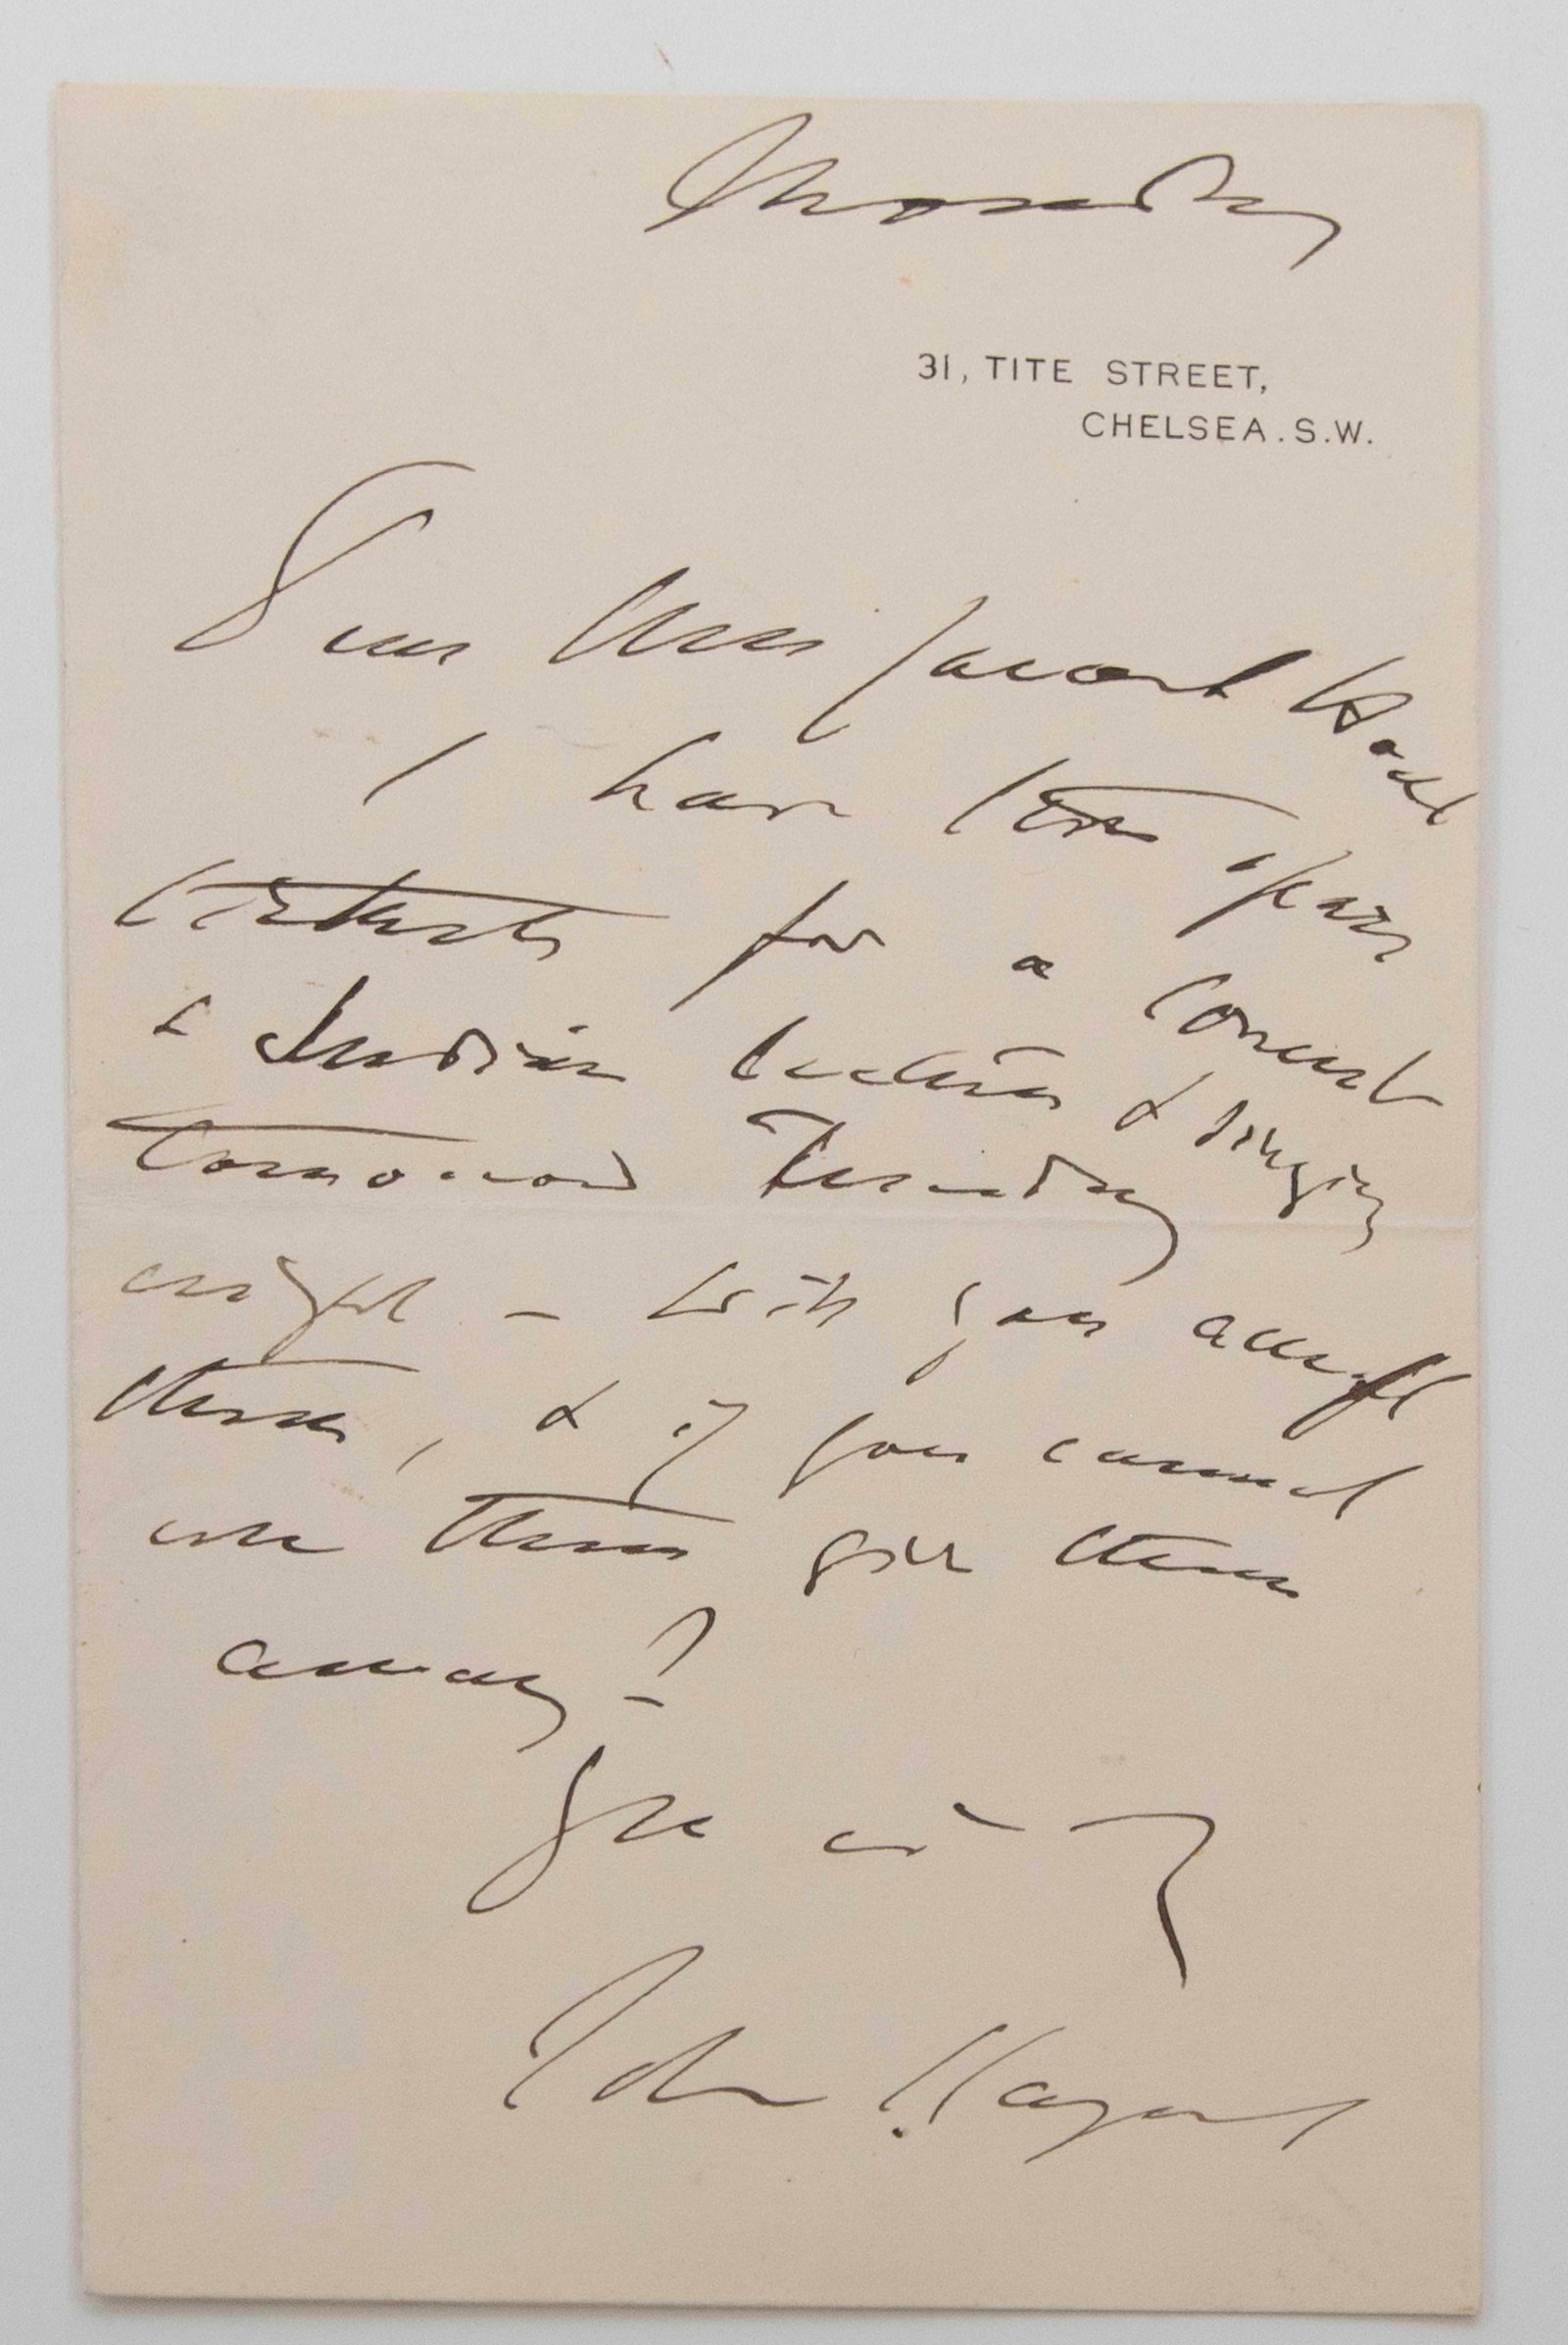 Monday
31, TITE STREET,
CHELSEA. S.W.
Dear Mrs Jacomb Hood
I have two spare
tickets for a concert
& Indian lecture & singing
tomorrow Tuesday
night - will you accept
them, & if you cannot
use them give them
away?
John S. Sargent